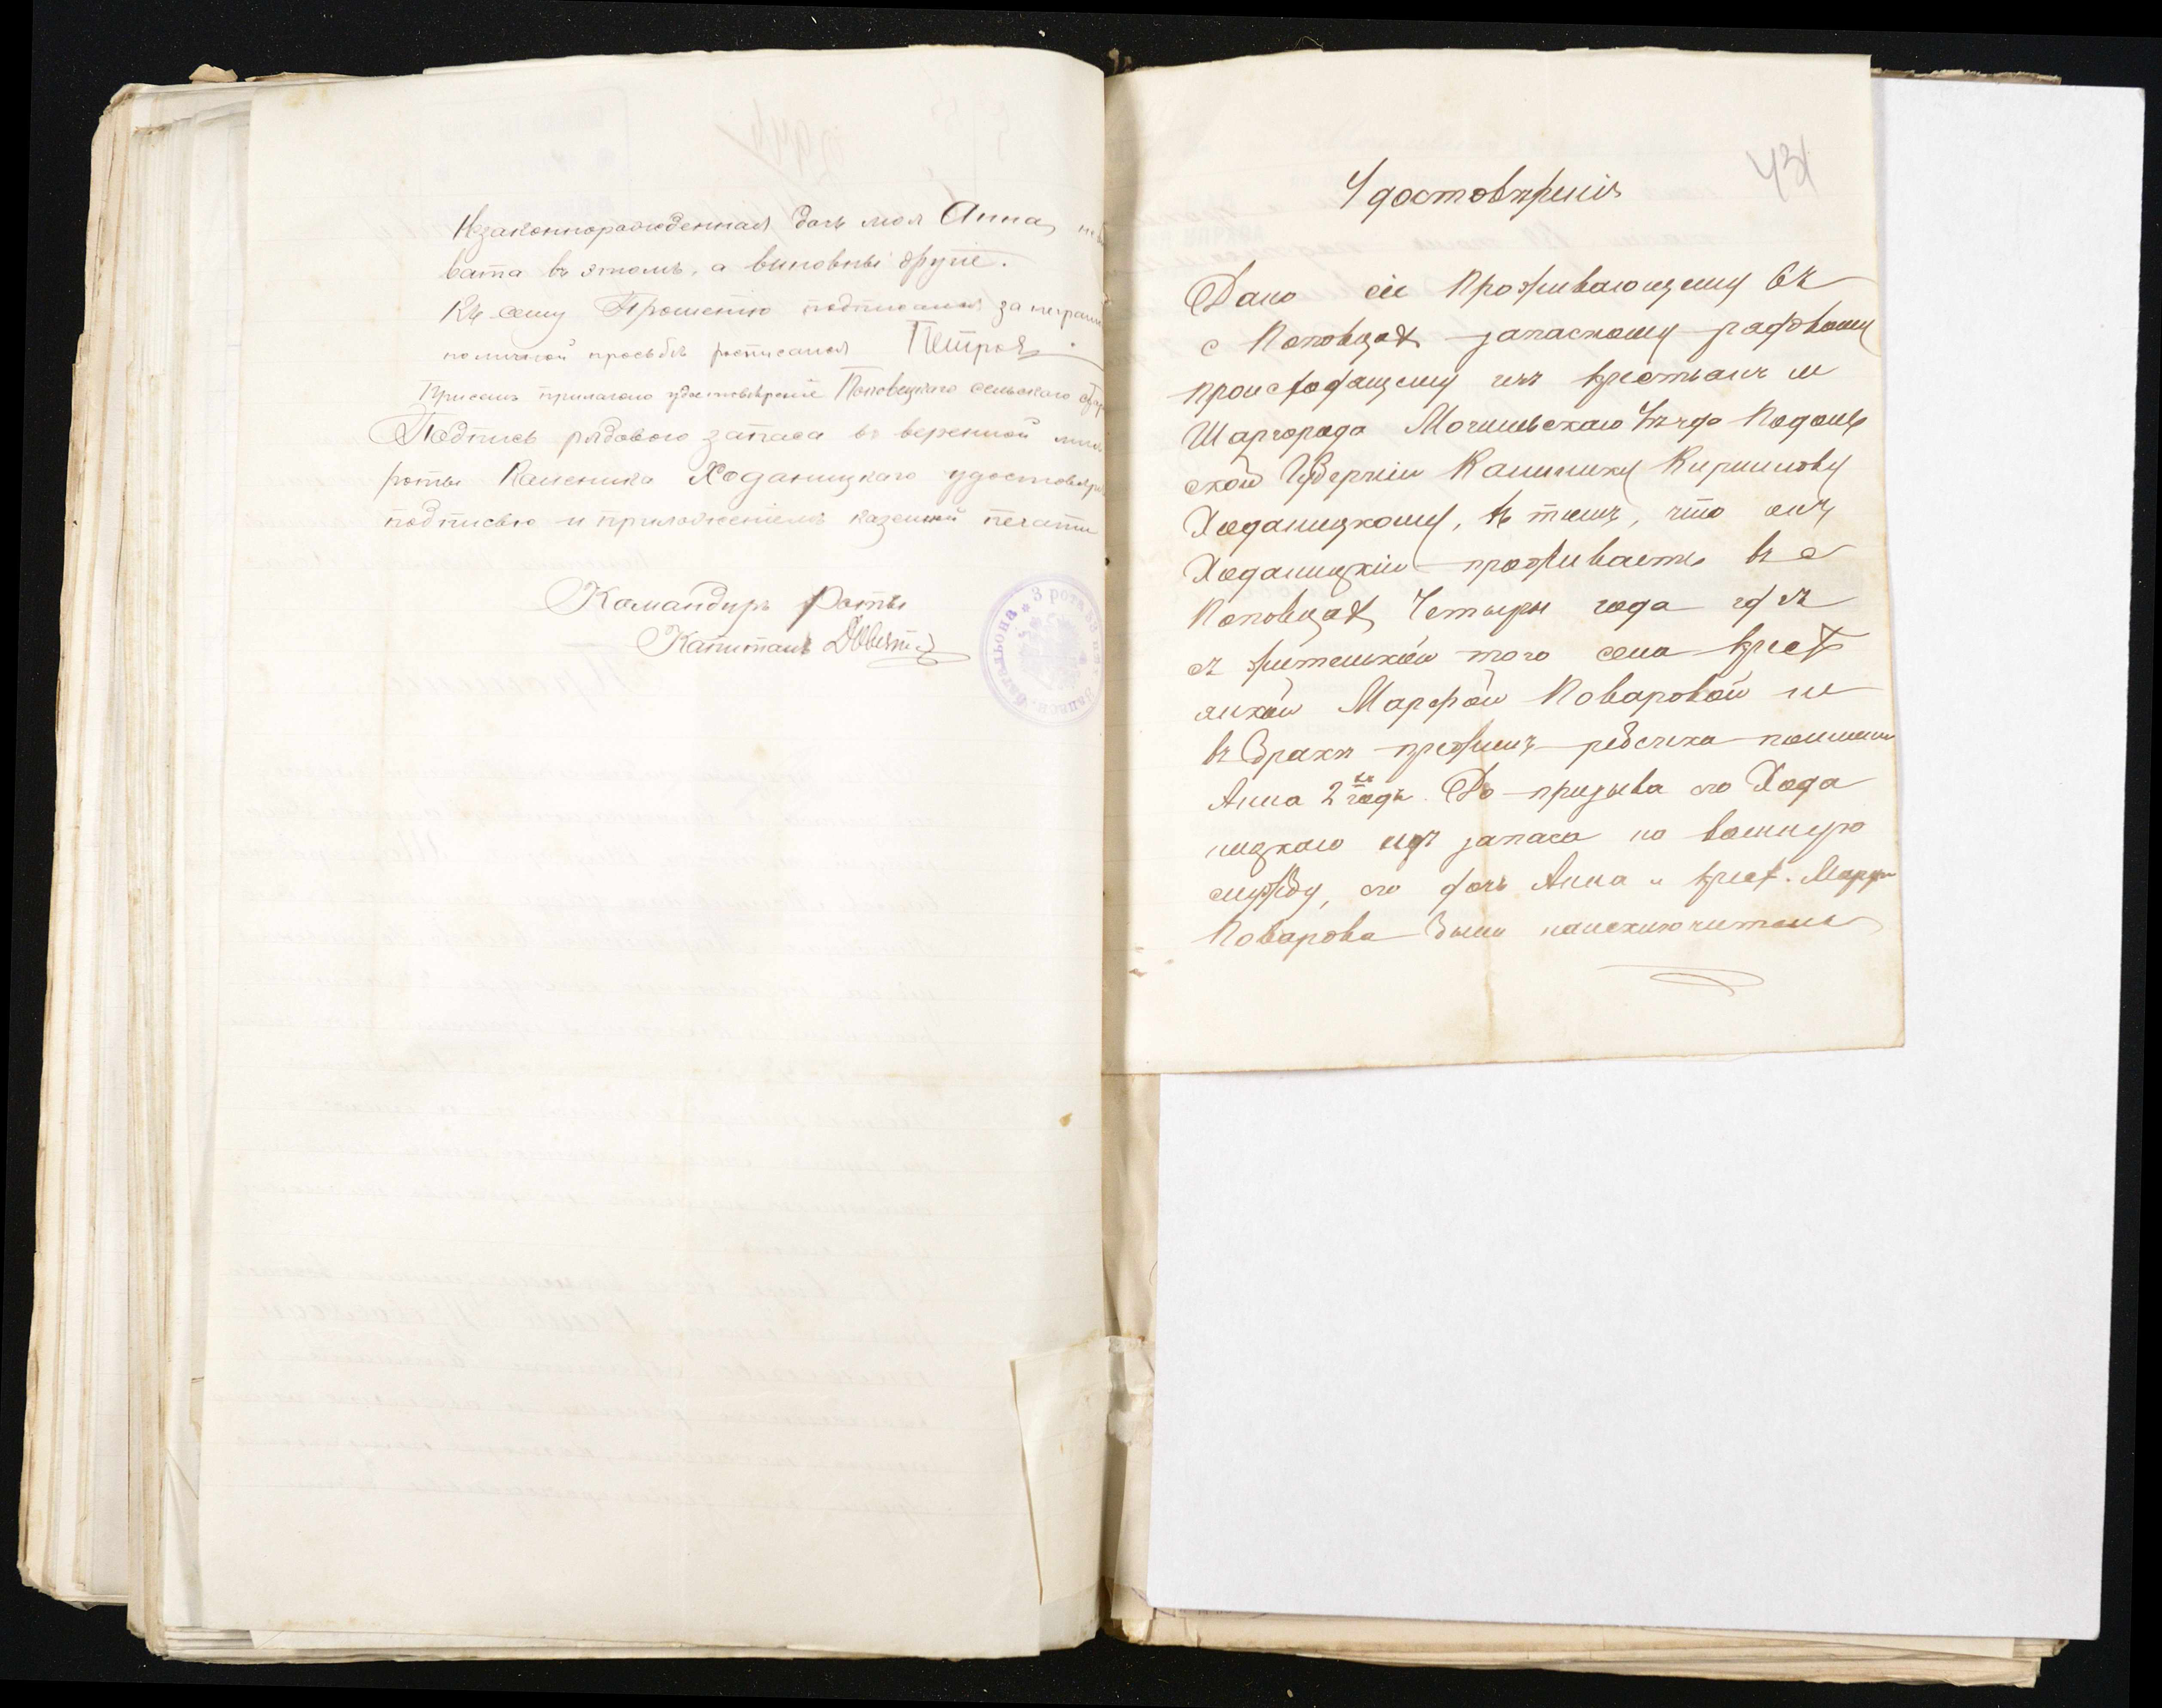 Незаконнорожденная дочь моя Анна, не
вата въ этомъ, а виновны другіе.
Къ сему Прошенію за неграм
по личной просьбѣ росписался Петровъ
При семъ прилагаю удостовѣреніе Поповецкаго сельскаго
Подпись рядового запаса въ вверенной мнѣ
роты Каленика Ходаницкаго удостовѣряю
подписью и приложеніемъ казенной печати
Командиръ Роты
Капитанъ
3 рота
43
Удостовѣреніе
Дано сіе проживающему въ
с Поповцах запасному рядовому
происходящему изъ крестьянъ м
Шаргорода Могилевскаго Уѣзда Подоль
ской Губерніи Калинику Кирилову
Ходаницкому, въ томъ, что онъ
Ходаницкій проживаетъ въ с
Поповцах Четыри года гдѣ
съ жителькой того села крест
янкой Марфой Поваровой не
въ бракѣ прежилъ ребенка по имени
Анна 2 хъ годъ. До призыва его Хода
ницкаго изъ запаса на военную
службу, его дочь Анна и крест. Марфа
Поварова были на исключитель